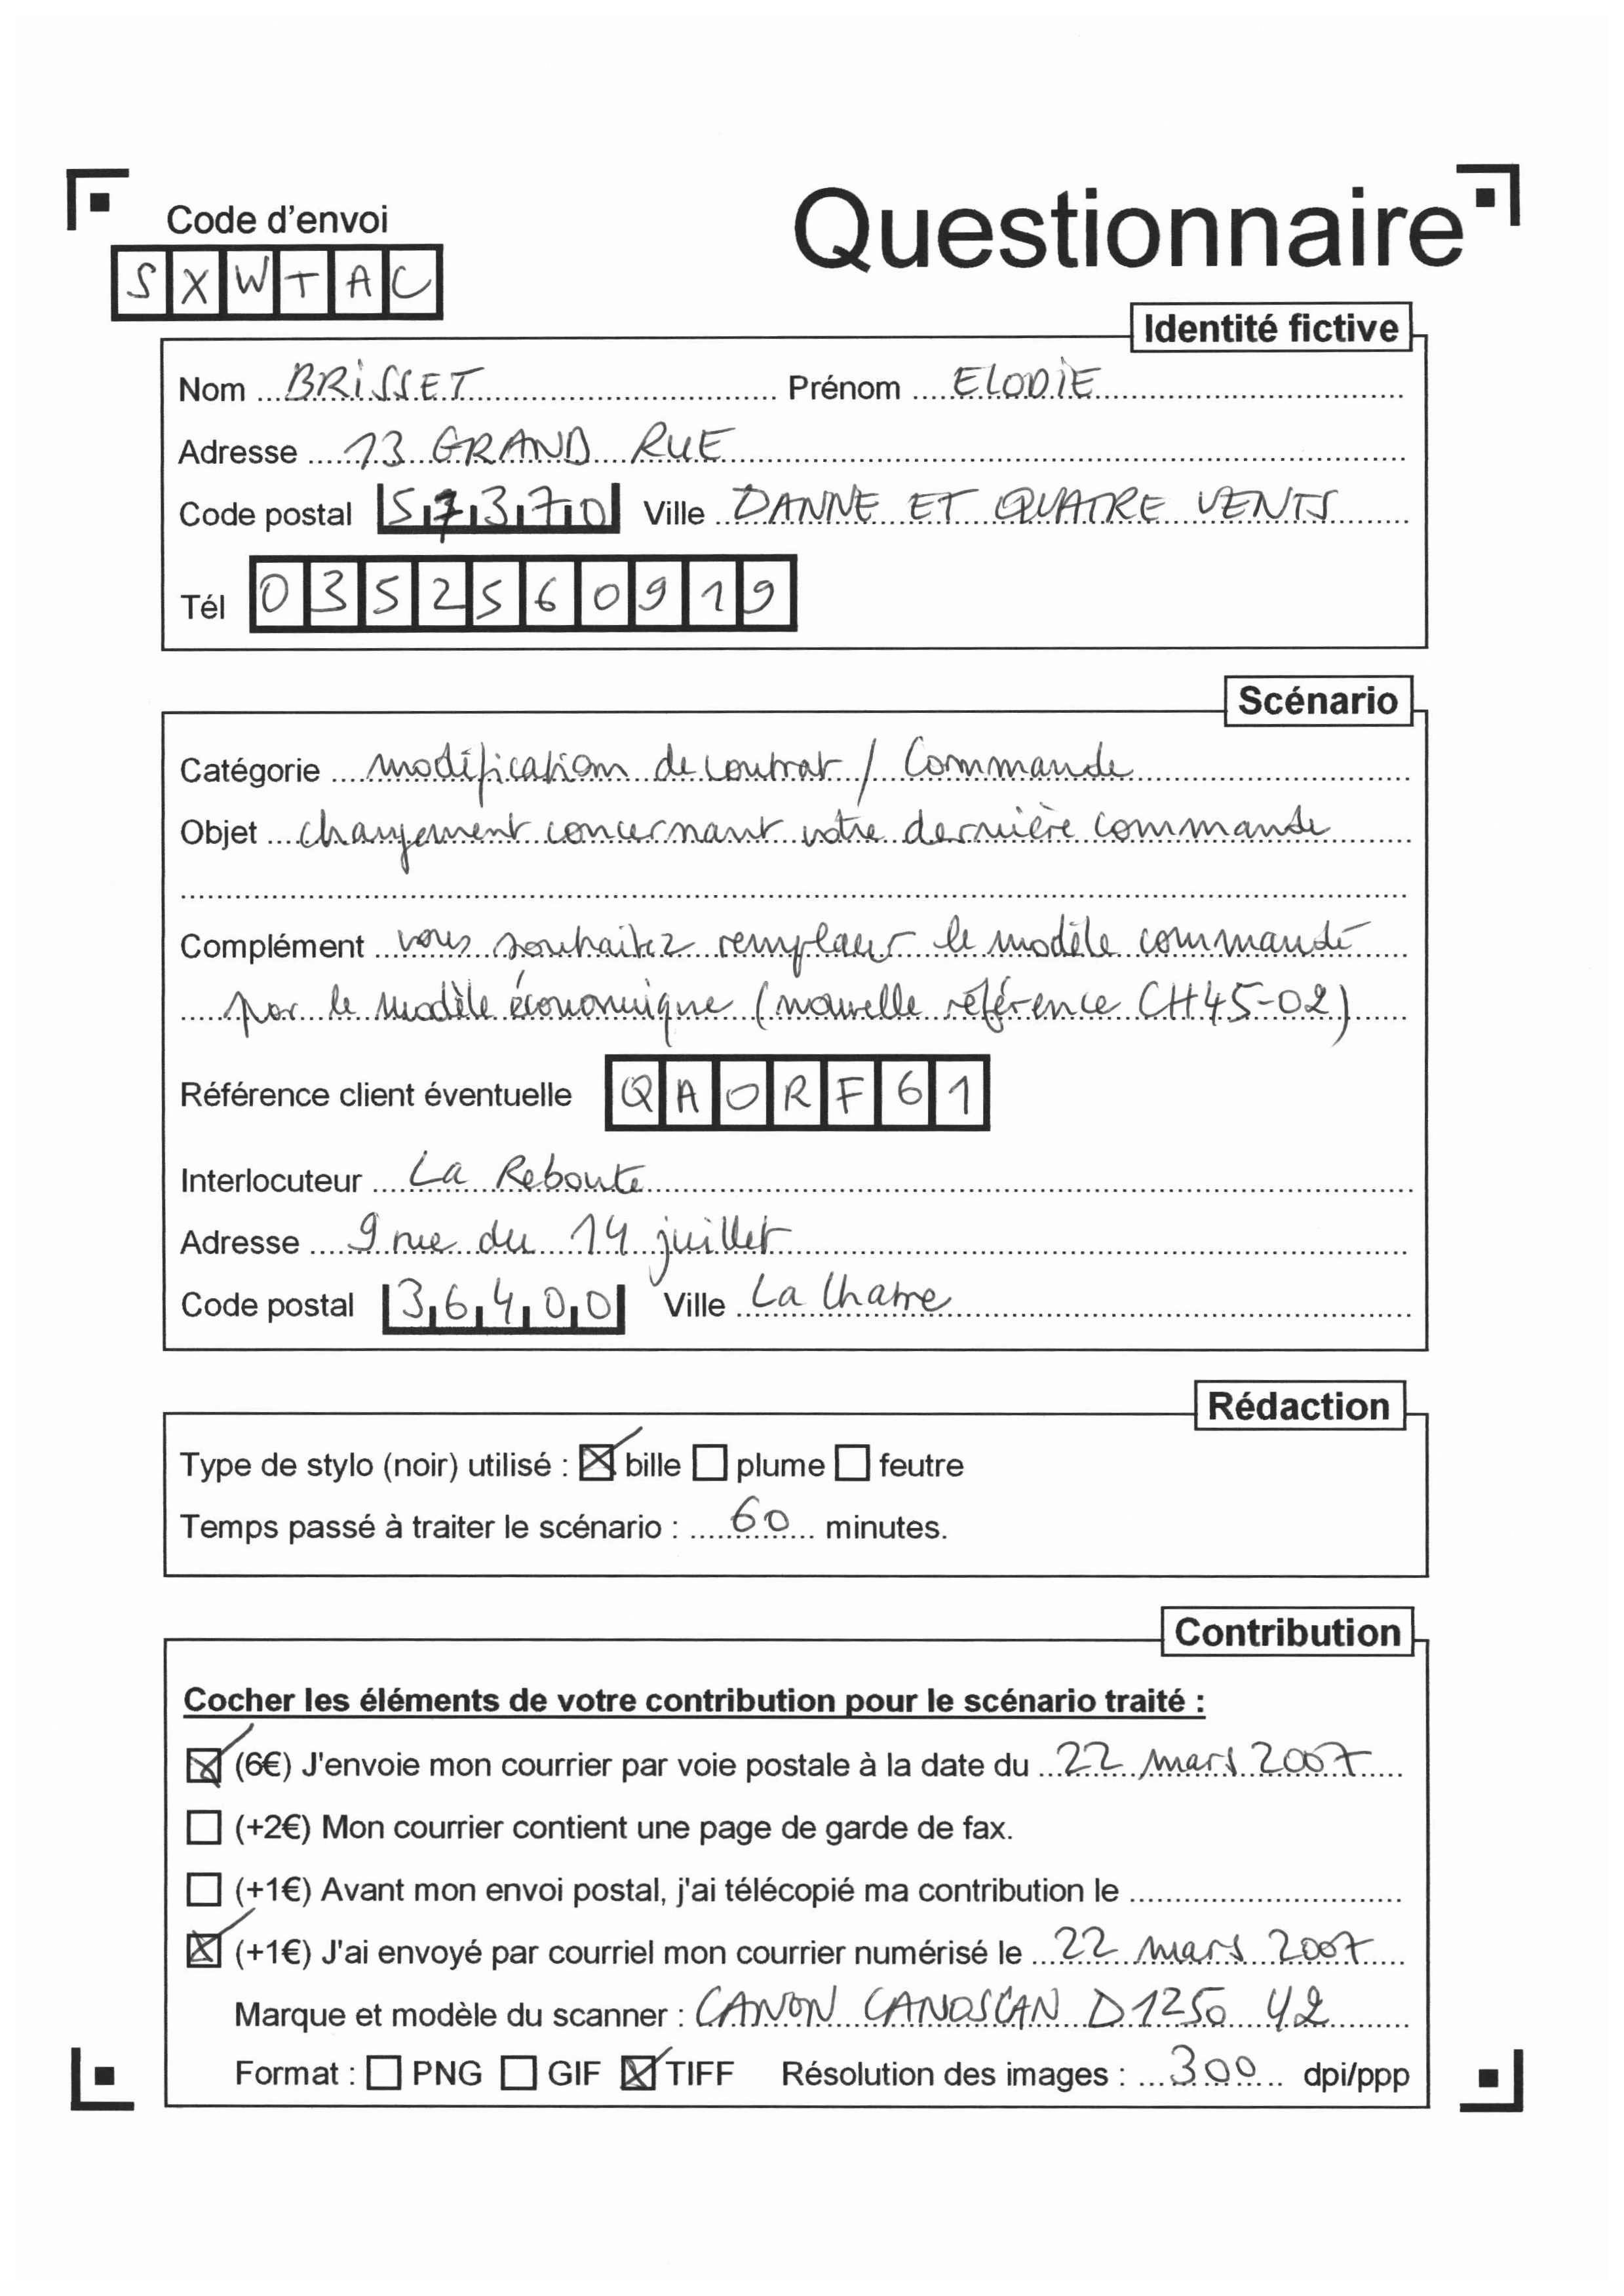 Code d'envoi
Questionnaire
SXWTAC
Identité fictive
Nom BRISSET Prénom ELODIE
Adresse 13 GRAND RUE
Code postal 57370 Ville DANNE ET QUATRE VENTS
Tél 0352560919
Scénario
Catégorie modification de contrat / Commande
Objet changement concernant votre dernière commande
Complément vous souhaitez remplacer le modèle commandé
par le modèle économique (nouvelle référence CH45-02)
Référence client éventuelle QAORF61
Interlocuteur La Reboute
Adresse 9 rue du 14 juillet
Code postal 36400 Ville La Chatre
Rédaction
Type de stylo (noir) utilisé : ☒ bille ☐ plume ☐ feutre
Temps passé à traiter le scénario : 60 minutes.
Contribution
Cocher les éléments de votre contribution pour le scénario traité :
☒ (6€) J'envoie mon courrier par voie postale à la date du 22 mars 2007
☐ (+2€) Mon courrier contient une page de garde de fax.
☐ (+1€) Avant mon envoi postal, j'ai télécopié ma contribution le
☒ (+1€) J'ai envoyé par courriel mon courrier numérisé le 22 mars 2007
Marque et modèle du scanner : CANON CANOSCAN D1250 U2
Format : ☐ PNG ☐ GIF ☒ TIFF Résolution des images : 300 dpi/ppp